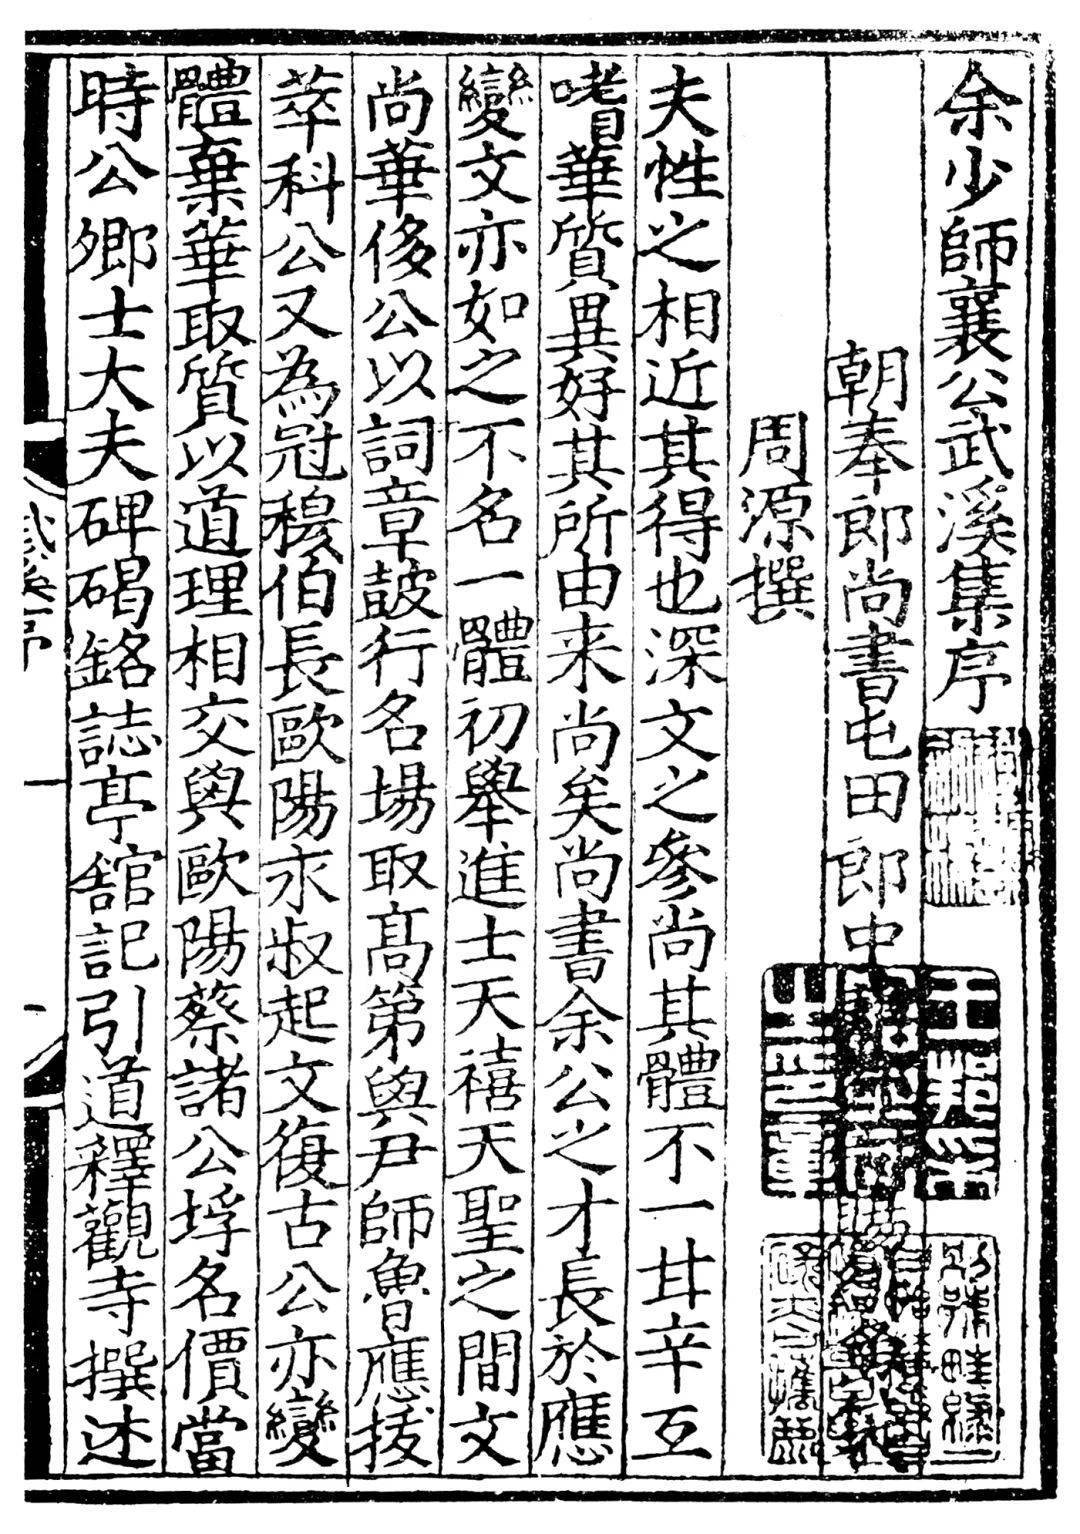 余少師襄公武溪集序
朝奉郎尚書屯田郎中
周源撰
夫性之相近其得也深文之參尚其體不一甘辛互
嗜華質異好其所由来尚矣尚書余公之才長於應
變文亦如之不名一體初舉進士天禧天聖之間文
尚華侈公以詞章鼓行名場取髙第與尹師魯應拔
萃科公又為冠穆伯長歐陽永叔起文復古公亦變
體棄華取質以道理相交與歐陽蔡諸公埒名價當
時公卿士大夫碑碣銘誌亭舘記引道釋觀寺撰述